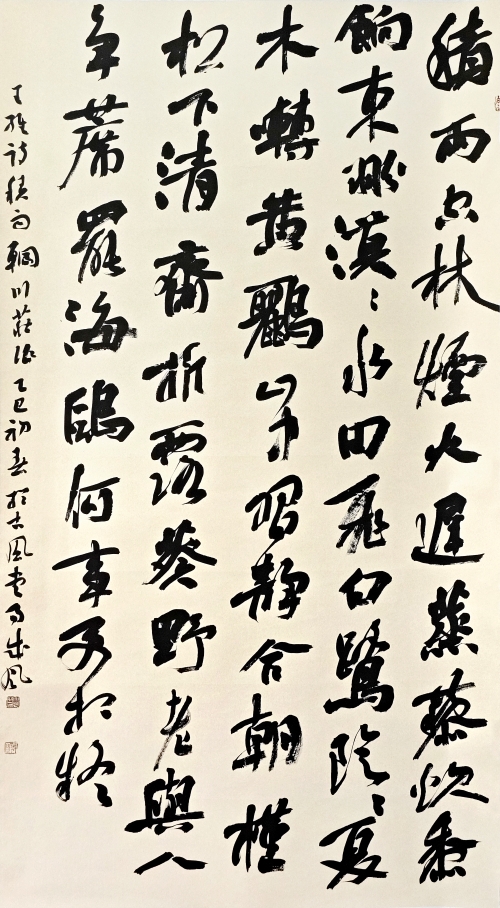 積雨空林煙火遲蒸藜炊黍
餉東菑漠々水田飛白鷺陰々夏
木囀黃鸝山中習靜合朝槿
松下清齋折露葵野老與人
爭蓆罷海鷗何事更相疑
王維詩積雨輞川莊作乙巳初春於古風堂成風